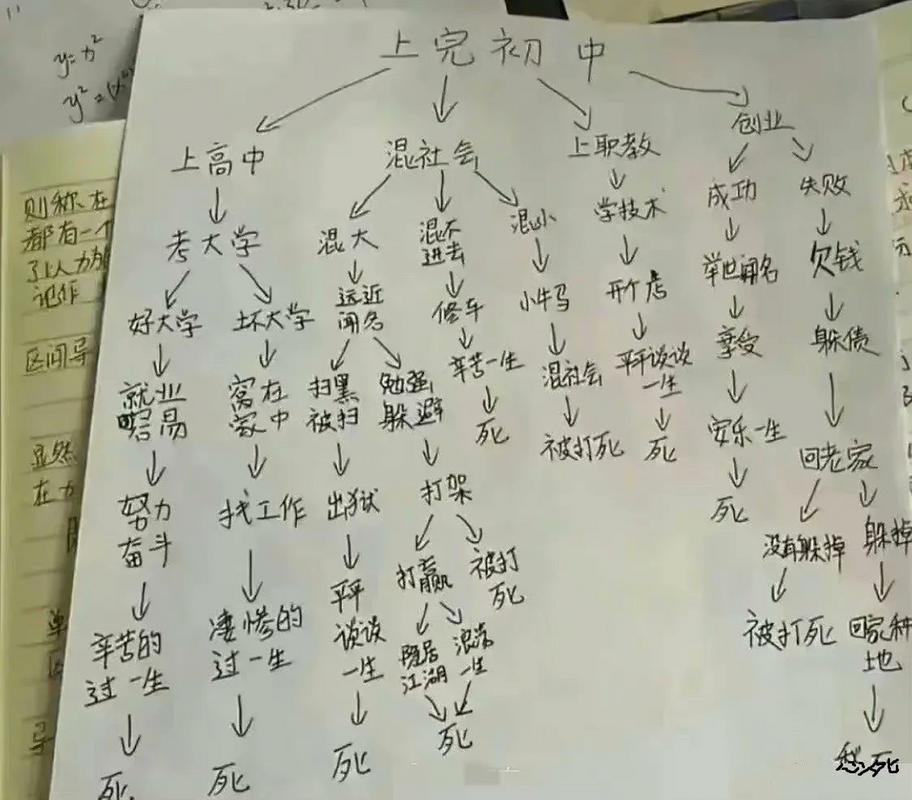 y=x²
y²=(x
上完初中
上高中
混社会
上职教
创业
考大学
混大
混不
进去
混小
学技术
成功
失败
好大学
坏大学
远近
闻名
修车
小牛马
开个店
举世闻名
欠钱
就业
容易
窝在
家中
扫黑
被扫
勉强
躲避
辛苦一生
混社会
平平谈谈
一生
享受
躲债
努力
奋斗
找工作
出狱
打架
死
被打死
死
安乐一生
回老家
辛苦的
过一生
凄惨的
过一生
平平
谈谈
一生
打赢
被打
死
死
没有躲掉
躲掉
死
死
死
隐居
江湖
浪荡
一生
死
被打死
回家种
地
死
则称在
都有一个
了人力为
记作
区间导
显然
在力
导